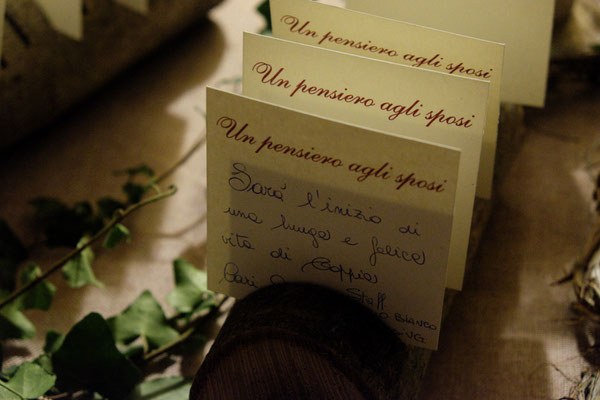 Un pensiero agli sposi
Un pensiero agli sposi
Un pensiero agli sposi
Sarà l'inizio di
una lunga e felice
vita di Coppia
Steff
BIANCO